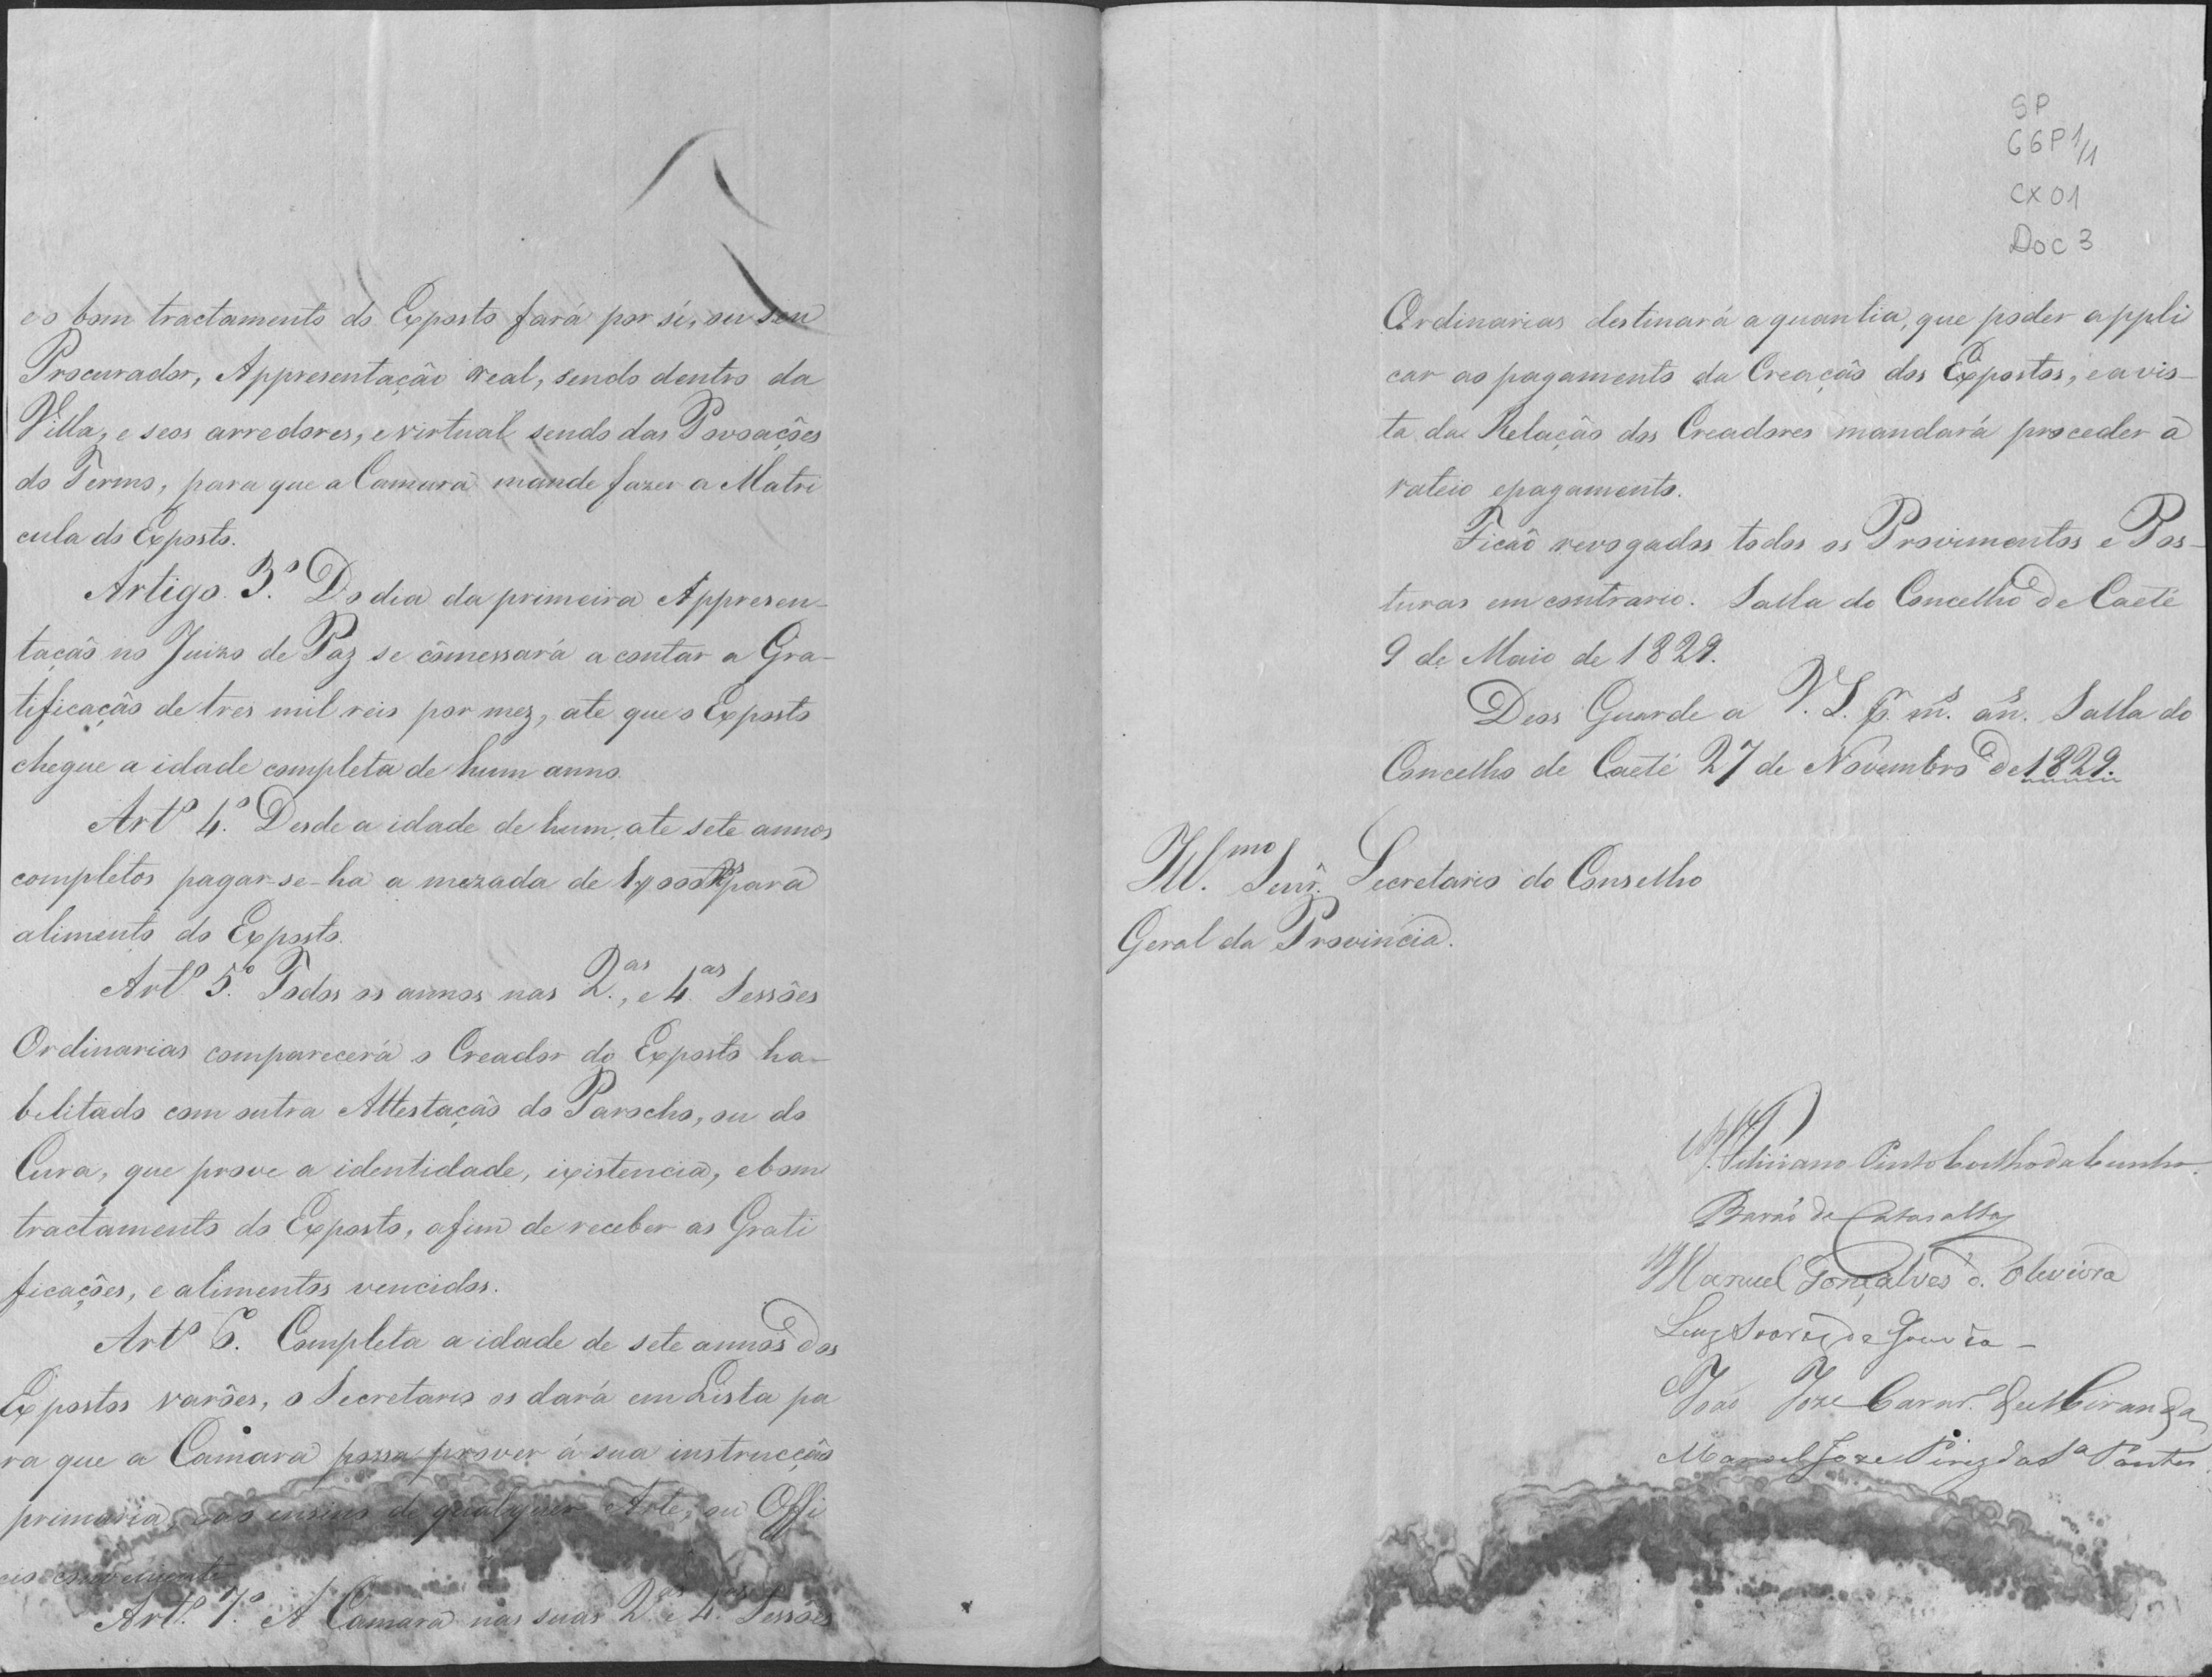 eo bom tractamento do Exposto fará por si, ou seu
Procurador, Appresentação real, sendo dentro da
Villa, e seos arredores, e virtual sendo das Povoações
do Termo, para que a Camara mande fazer a Matri
cula do Exposto.
Artigo. 3.º Do dia da primeira Appresen-
tação no Juizo de Paz se cômessará a contar a Gra-
tificação de tres mil reis por mez, ate que o Exposto
chegue a idade completa de hum anno.
Artº 4.º Desde a idade de hum, ate sete annos
completos pagar-se-ha a mezada de para
alimento do Exposto.
Artº 5.º Todos os annos nas 2.as, e 4.as Sessões
Ordinarias comparecerá o Creador do Exposto ha-
bilitado com outra Attestação do Parocho, ou do
Cura, que prove a identidade, existencia, ebom
tractamento do Exposto, afim de receber as Grati
ficações, e alimentos vencidos.
Artº 6. Completa a idade de sete annos dos
Expostos varões, o Secretario os dará em Lista pa
ra que a Camara possa prover á sua instrucção
primaria, eao ensino de qualquer Arte, ou Offi
cio conveniente
Artº. 7.º A Camara nas suas 2.as e 4.as Sessões
SP
CX 01
Doc 3
Ordinarias destinará a quantia, que poder appli
car ao pagamento da Creação dos Expostos, e a vis-
ta da Relação dos Creadores mandará proceder à
rateio epagamento.
Ficaõ revogados todos os Provimentos e Pos-
turas em contrario. Salla do Concelho de Caeté
9 de Maio de 1829.
Deos Guarde a V. S. p.r m.s an.s Salla do
Concelho de Caeté 27 de Novembro de 1829.
Ill.mo Senr. Secretario do Conselho
Geral da Provincia.
Pinto Coelho da Cunha
Barão de Catas altas
Manuel Gonçalves d. Oliveira
Luiz Soares de Gouvêa -
João Joze Carnr.º de Miranda
Manoel Joze Pires da S.ª Pontes